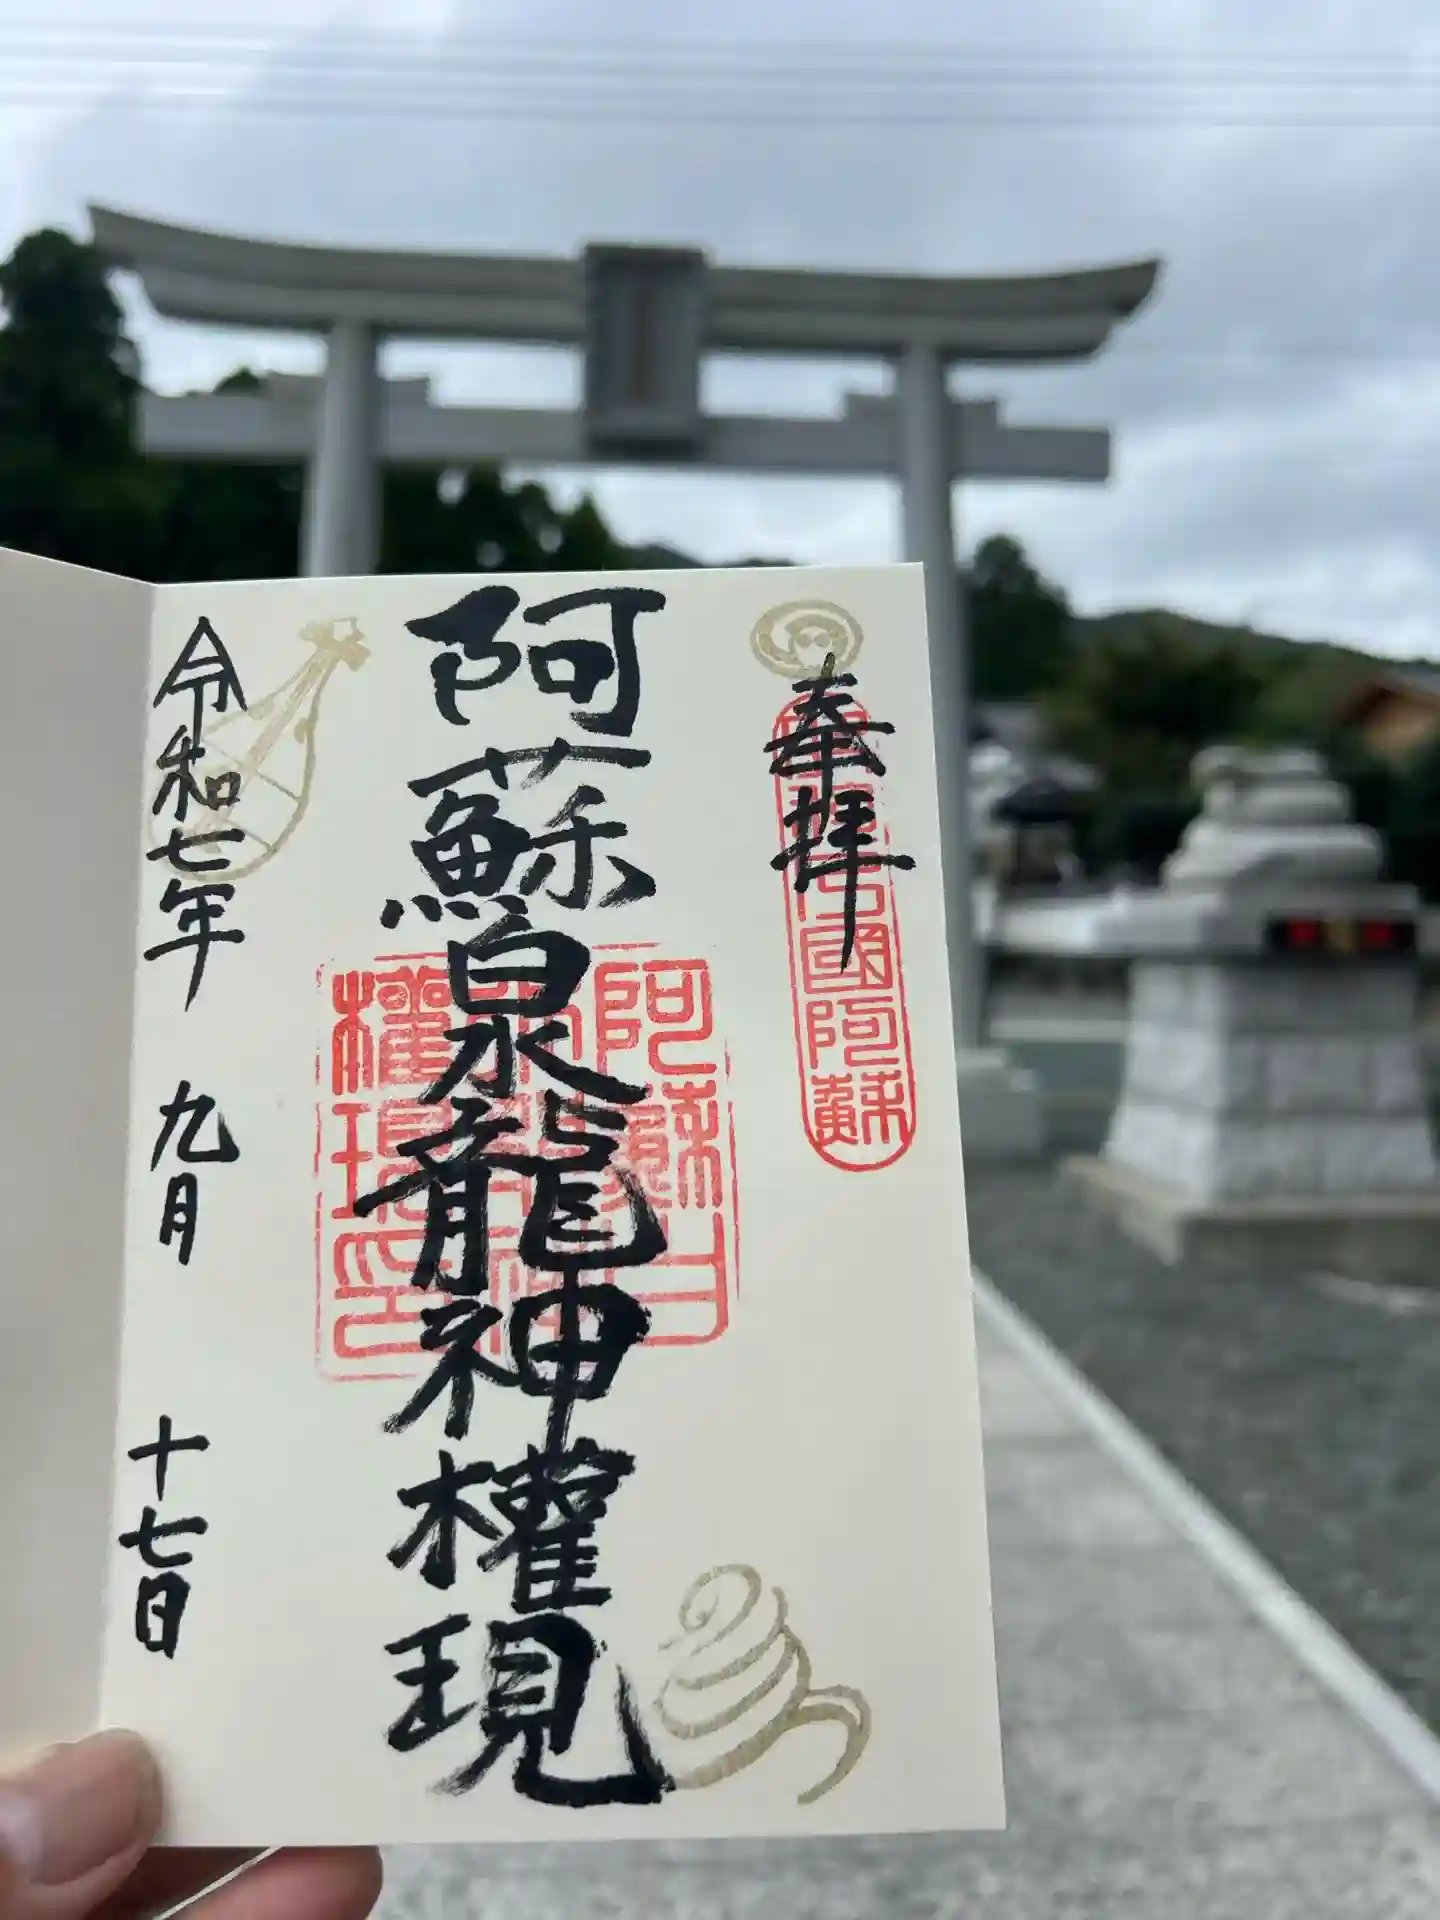 奉拝
國阿蘇
阿蘇白水龍神權現
阿蘇白
權現印
令和七年 九月 十七日